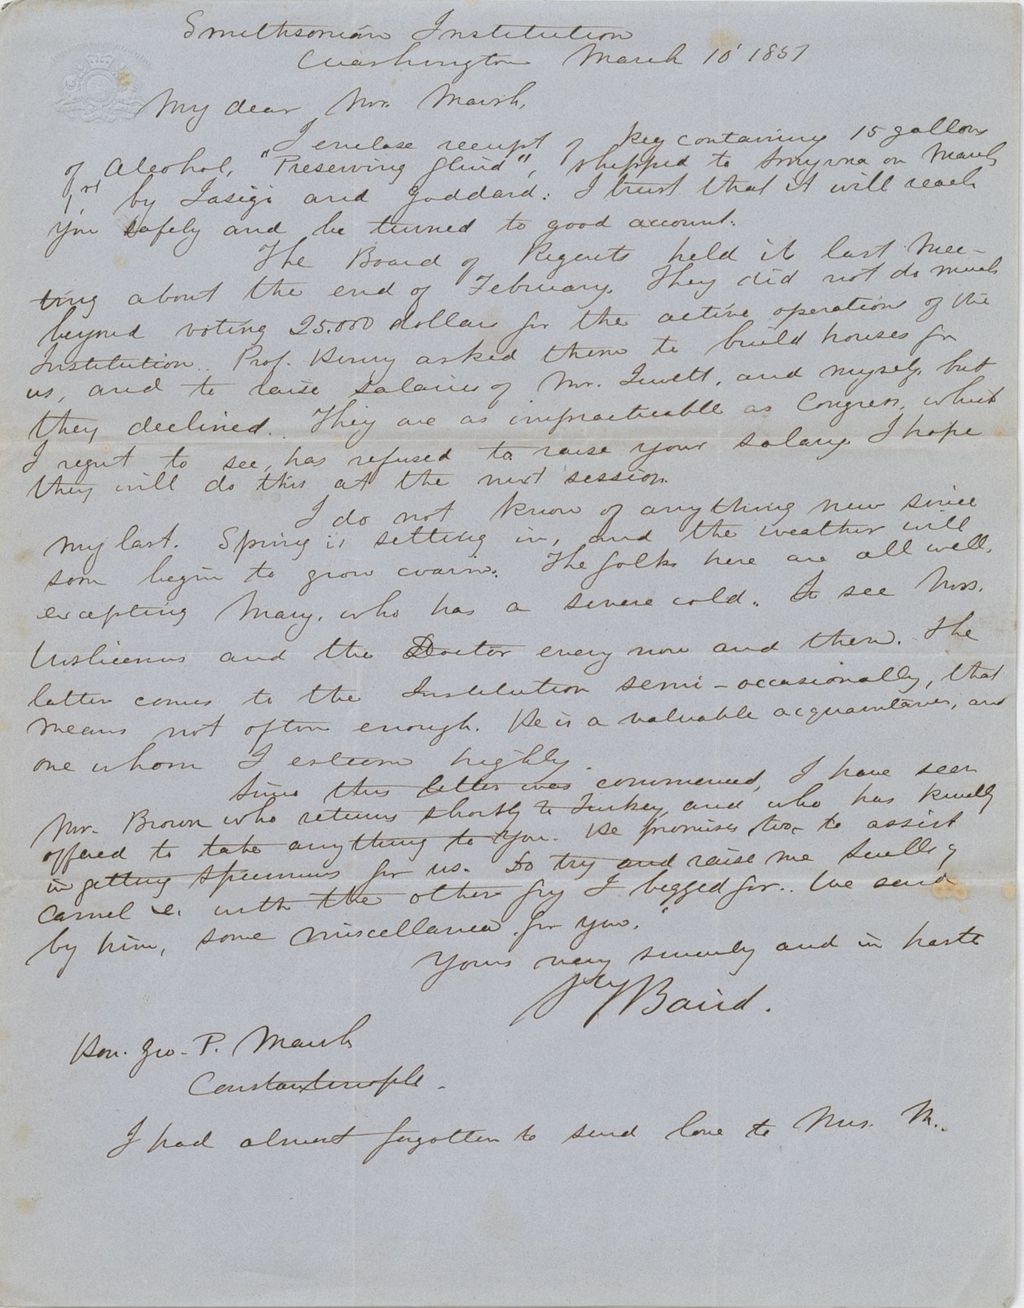 Smithsonian Institution
Washington March 10 1851
My dear Mr. Marsh,
I enclose receipt of keg containing 15 gallons
of Alcohol, "Preserving fluid", shipped to Smyrna on March
1st by Iasigi and Goddard. I trust that it will reach
you safely and be turned to good account.
The Board of Regents held its last mee-
ting about the end of February. They did not do much
beyond voting 25.000 dollars for the active operations of the
Institution. Prof. Henry asked them to build houses for
us, and to raise salaries of Mr. Jewett, and myself, but
they declined. They are as impracticable as Congress, which
I regret to see, has refused to raise your salary. I hope
they will do this at the next session.
I do not know of anything new since
my last. Spring is setting in, and the weather will
soon begin to grow warm. The folks here are all well,
excepting Mary, who has a severe cold. I see Mrs.
Wislicenus and the Doctor every now and then. The
latter comes to the Institution semi-occasionally, that
means not often enough. He is a valuable acquaintance, and
one whom I esteem highly.
Since this letter was commenced, I have seen
Mr. Brown who returns shortly to Turkey, and who has kindly
offered to take anything to you. He promises, too, to assist
in getting specimens for us. Do try and raise me skulls of
camel &c. with the other fry I begged for. We send
by him, some miscellanea for you.
Yours very sincerely and in haste
Baird.
Hon. Geo. P. Marsh
Constantinople.
I had almost forgotten to send love to Mrs. M.